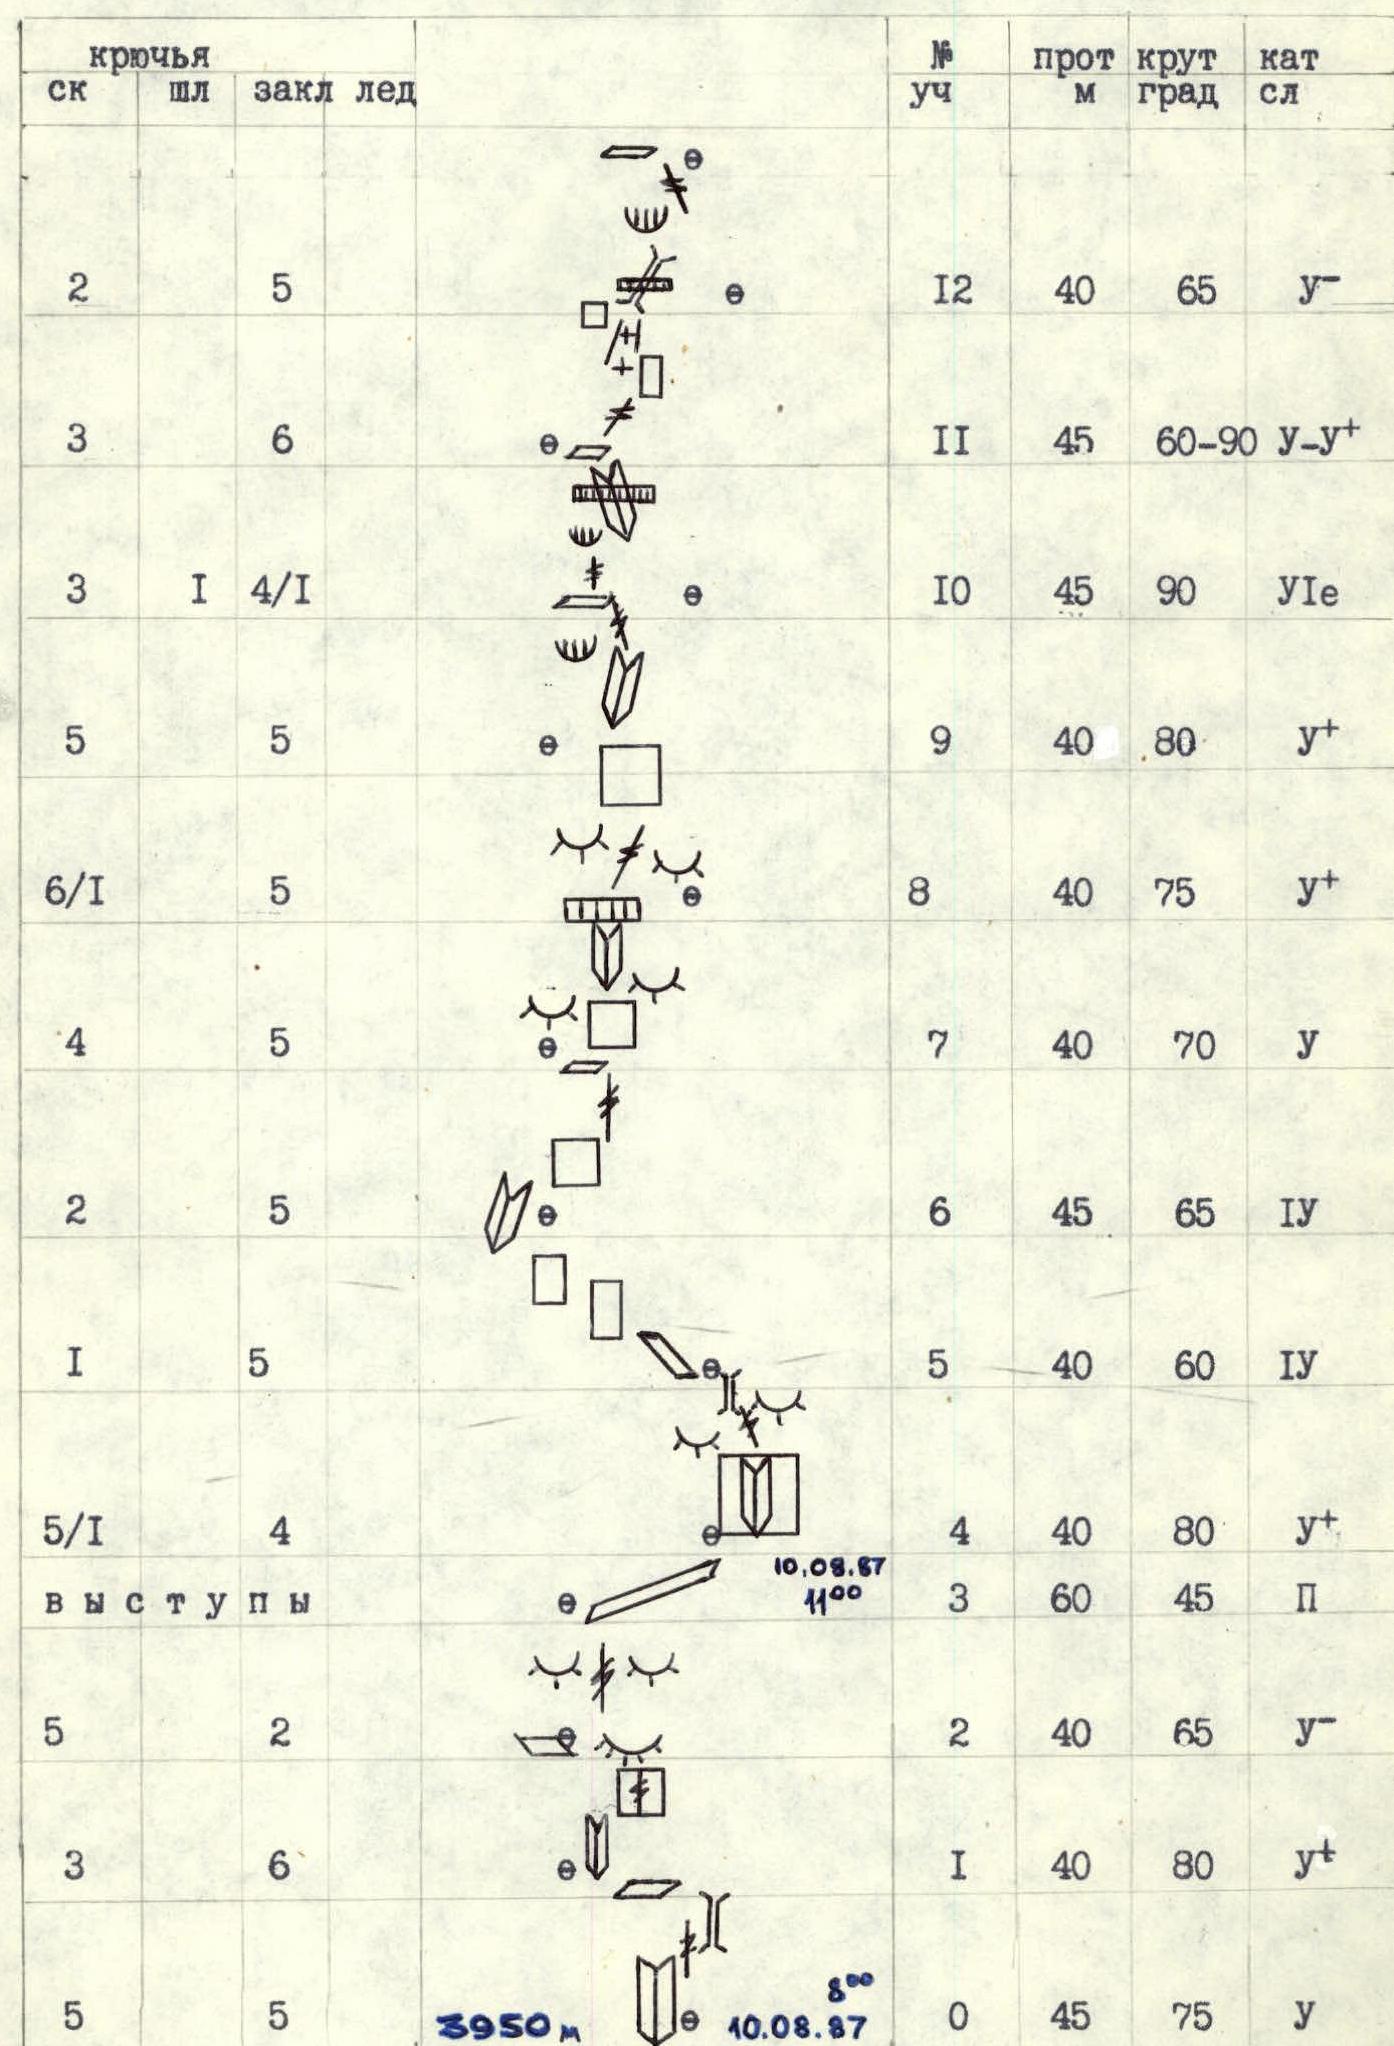 крючья № прот крут кат
ск шл закл лед уч м град сл
2 5 I2 40 65 У-
3 6 II 45 60-90 У-У+
3 I 4/I I0 45 90 УIе
5 5 9 40 80 У+
6/I 5 8 40 75 У+
4 5 7 40 70 У
2 5 6 45 65 IУ
I 5 5 40 60 IУ
5/I 4 4 40 80 У+
10.08.87
выступы 11⁰⁰ 3 60 45 П
5 2 2 40 65 У-
3 6 I 40 80 У+
8⁰⁰
5 5 3950 м 10.08.87 0 45 75 У